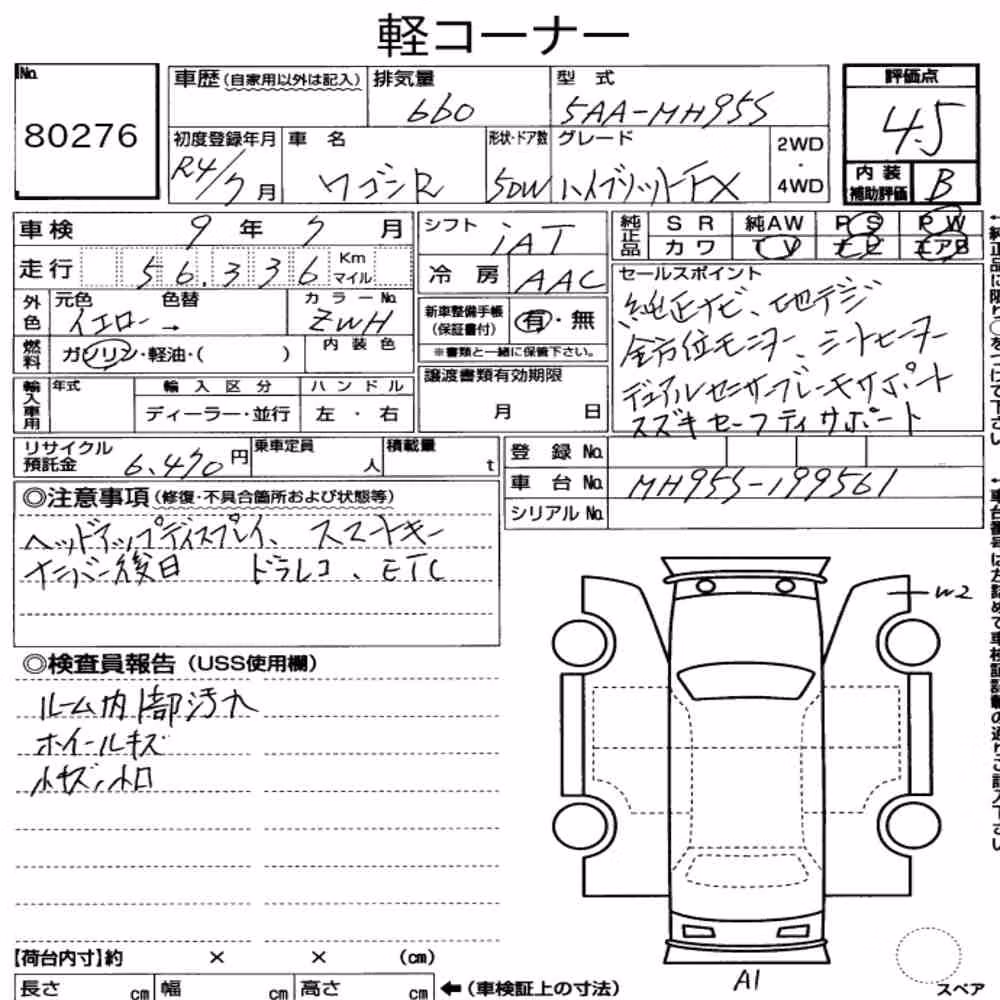 軽コーナー
No.
80276
車歴(自家用以外は記入)
排気量
660
型式
5AA-MH95S
評価点
4.5
初度登録年月
R4/7月
車名
ワゴンR
形状・ドア数
5DW
グレード
ハイブリットFX
2WD
・
4WD
内装
補助評価
B
車検 9年7月
シフト
iAT
純正品
SR 純AW PS PW
カワ TV ナビ エアB
走行 56.336 Km マイル
冷房 AAC
セールスポイント
純正ナビ、地デジ
全方位モニター、シートヒーター
デュアルセンサーブレーキサポート
スズキセーフティサポート
外色
元色 色替
イエロー→
カラーNo.
ZWH
新車整備手帳
(保証書付)
有・無
※書類と一緒に保管下さい。
燃料
ガソリン・軽油・( )
内装色
輸入車用
年式
輸入区分
ハンドル
ディーラー・並行
左・右
譲渡書類有効期限
月 日
リサイクル
預託金
6.470円
乗車定員
人
積載量
t
登録No.
車台No. MH95S-199561
シリアルNo.
◎注意事項(修復・不具合箇所および状態等)
ヘッドアップディスプレイ、スマートキー
ナンバー後日 ドラレコ、ETC
W2
◎検査員報告(USS使用欄)
ルーム内1部汚れ
ホイールキズ
小キズ、小凹
【荷台内寸】約 × × (cm)
長さ cm 幅 cm 高さ cm
←(車検証上の寸法)
A1
スペア
↑純正品に限り○をつけて下さい
↑車台番号は左詰めで車検証記載の通りご記入下さい